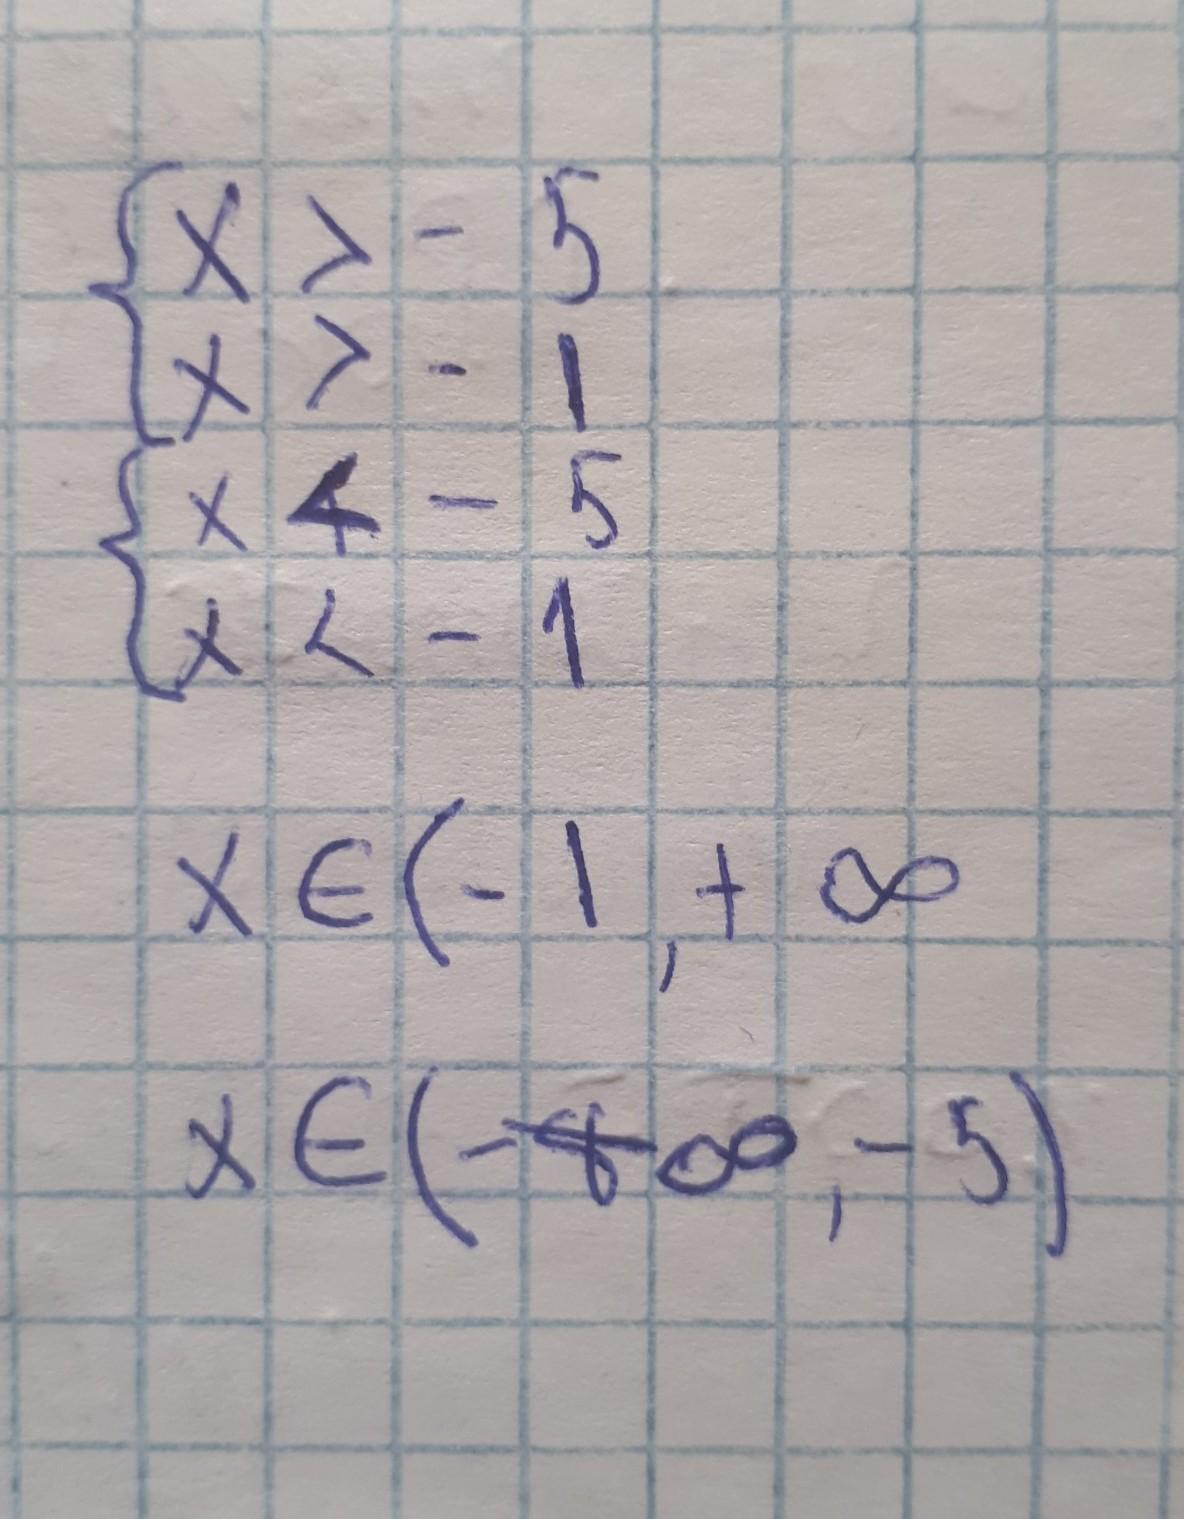 {x > - 5
x > - 1
{x < - 5
x < - 1
x ∈ (- 1, + ∞
x ∈ (- ∞, - 5)